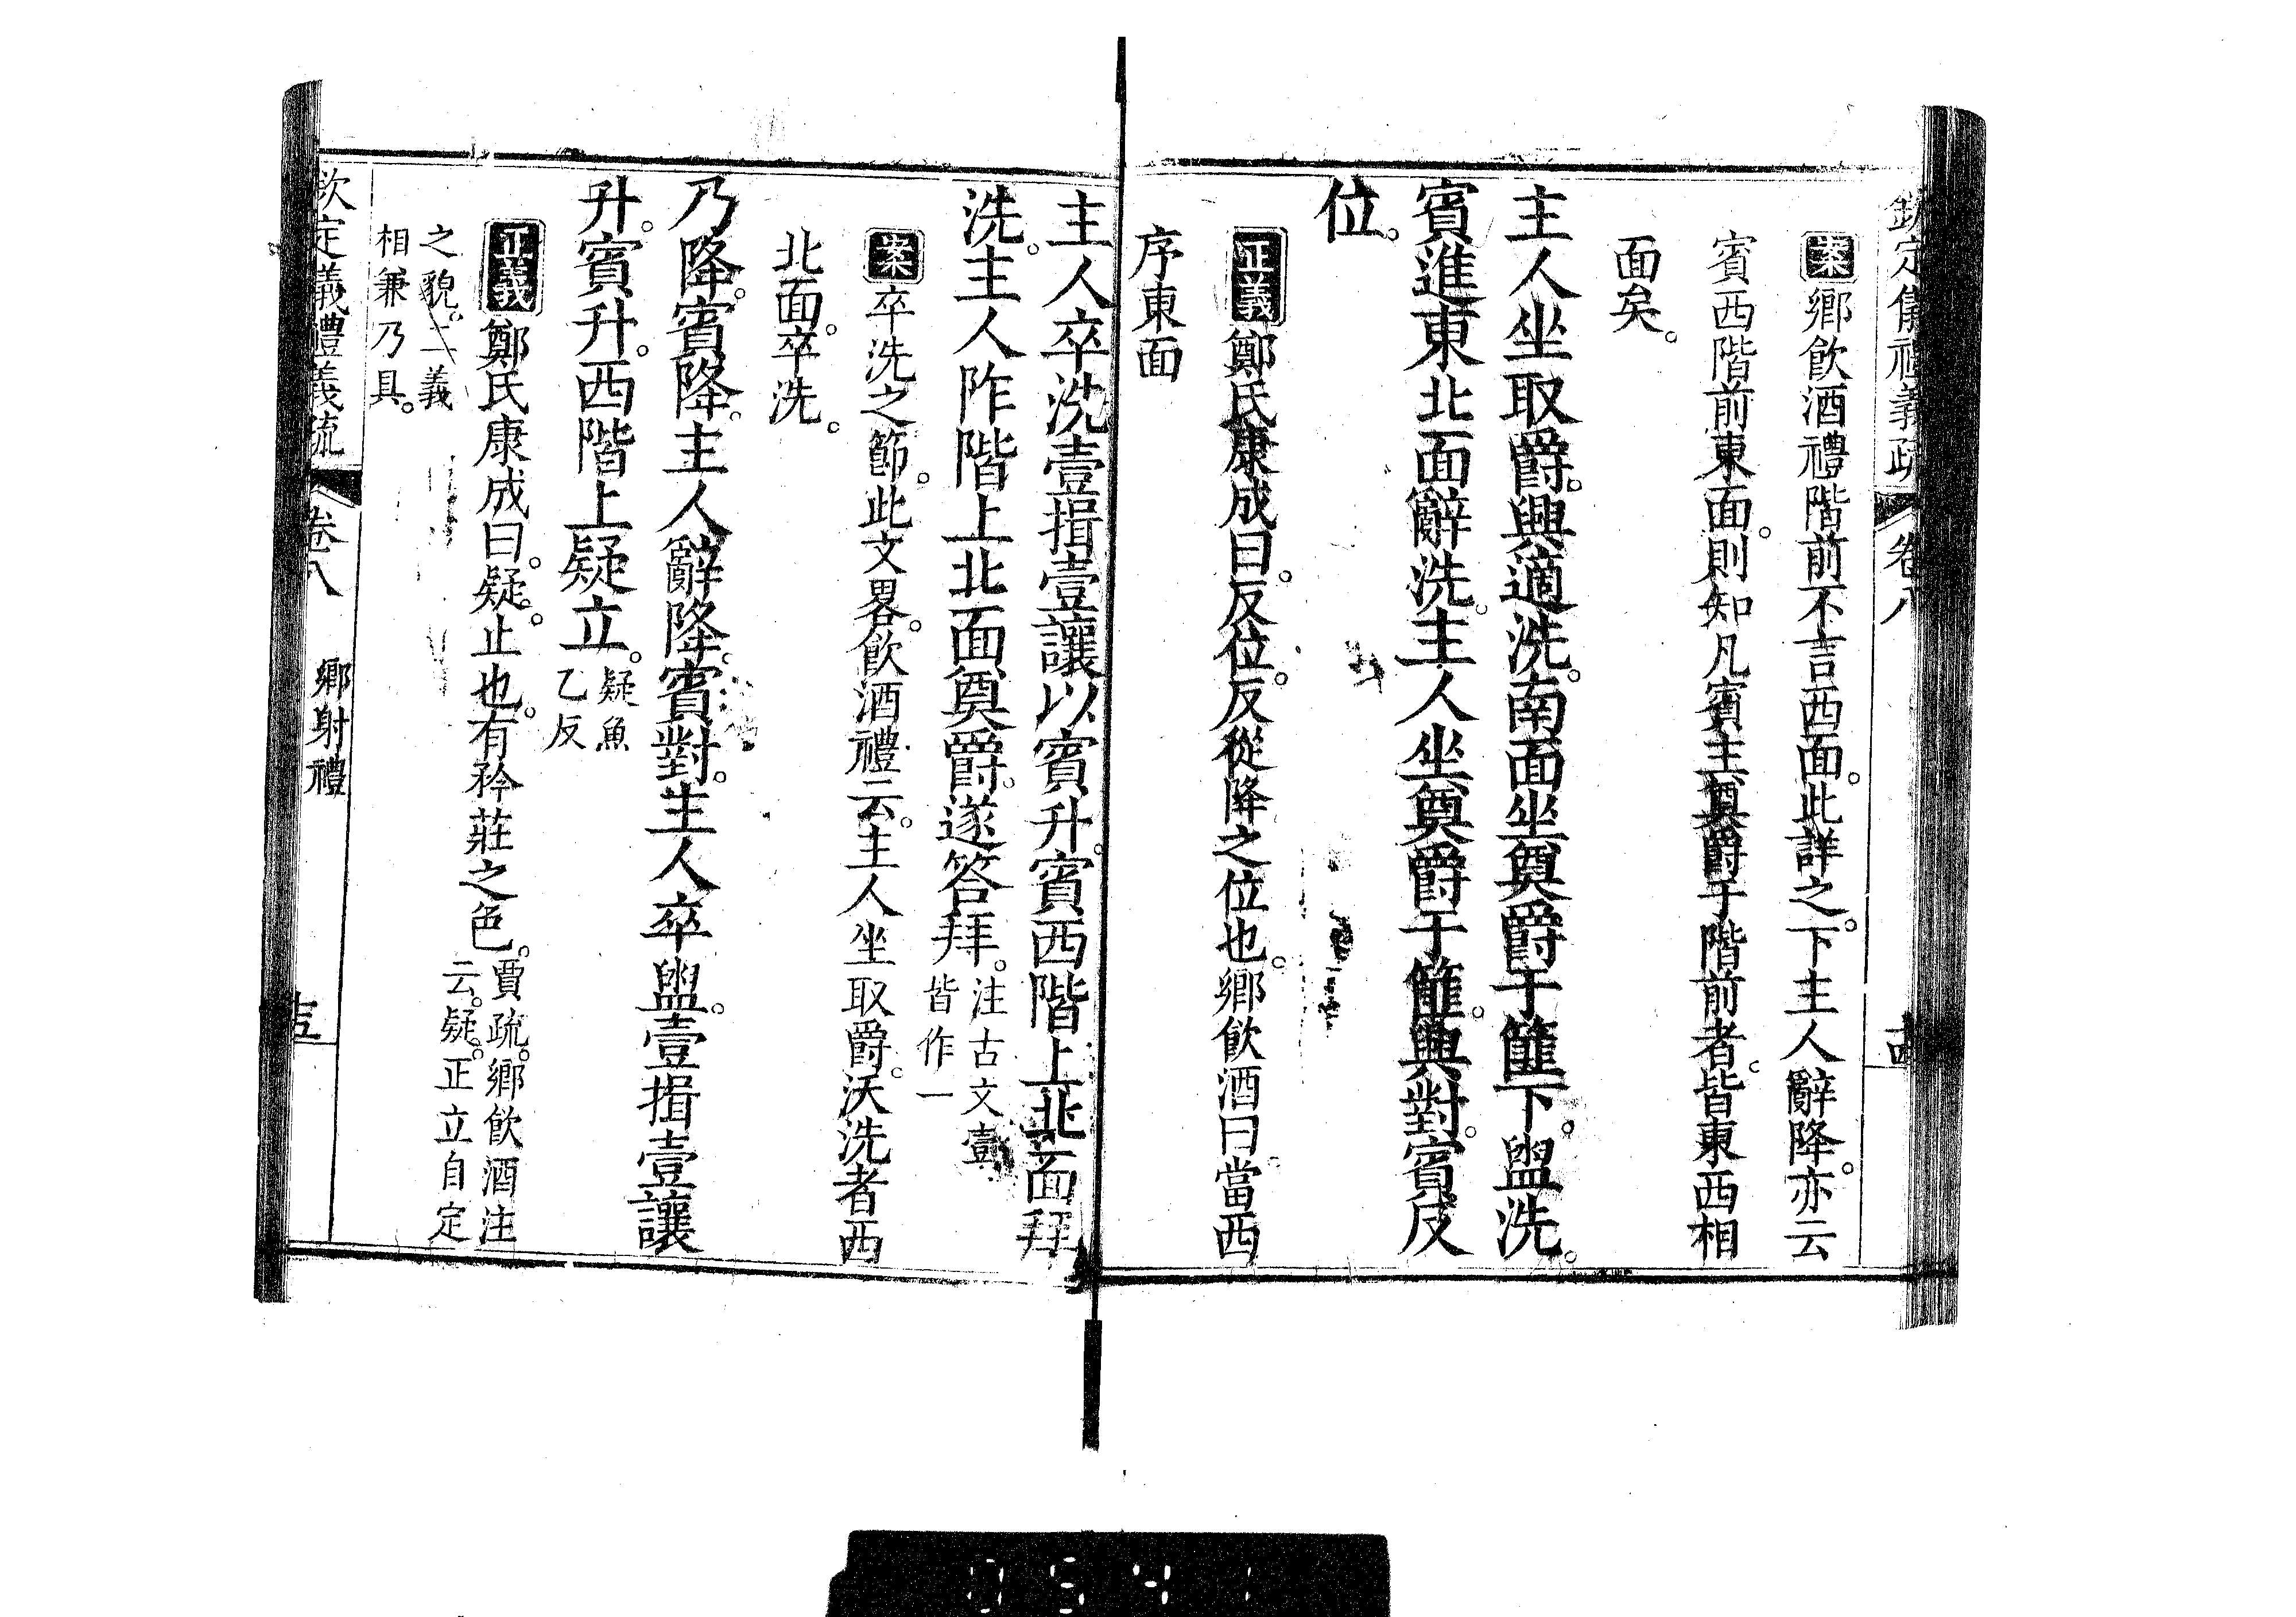 欽定儀禮義疏 卷八 十四
案鄉飲酒禮階前不言西面。此詳之。下主人辭降。亦云
賓西階前東面。則知凡賓主奠爵于階前者。皆東西相
面矣。
主人坐取爵。興適洗。南面坐奠爵于篚下。盥洗。
賓進東北面辭洗。主人坐奠爵于篚。興對。賓反
位。
正義鄭氏康成曰。反位。反從降之位也。鄉飲酒曰。當西
序東面
主人卒洗壹揖壹讓以賓升。賓西階上北面拜
洗。主人阼階上北面奠爵。遂答拜。注古文壹
皆作一
案卒洗之節。此文畧。飲酒禮云。主人坐取爵。沃洗者西
北面。卒洗。
乃降。賓降。主人辭降。賓對。主人卒盥。壹揖壹讓
升。賓升。西階上疑立。疑魚
乙反
正義鄭氏康成曰。疑。止也。有矜莊之色。賈疏。鄉飲酒注
云。疑。正立自定
之貌。二義
相兼乃具。
欽定儀禮義疏 卷八 鄉射禮 十五